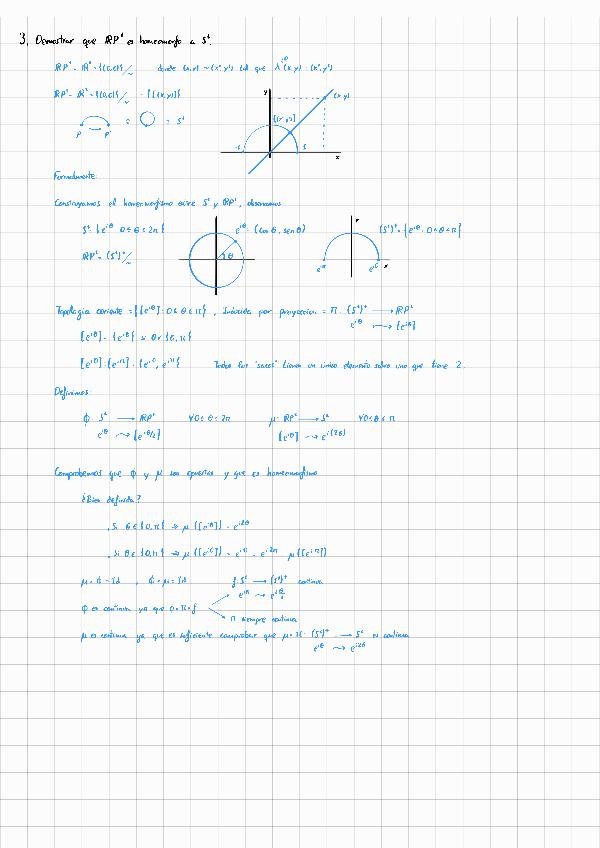 3. Demostrar que RP¹ es homeomorfo a S¹.
RP¹ = R² - {(0,0)}/~ donde (x,y) ~ (x',y') tal que λ(x,y) = (x',y')
RP¹ = R² - {(0,0)}/~ = {[(x,y)]}
y (x,y)
[(x',y')]
= S¹
P P'
x
Formalmente:
Construyamos el homeomorfismo entre S¹ y RP¹, observamos
S¹ = {e^iθ : 0≤θ≤2π} e^iθ = (cos θ, sen θ) (S¹)⁺ = {e^iθ : 0≤θ≤π}
RP¹ = (S¹)⁺/~ θ e^iπ e^i0
Topología cociente = {[e^iθ] : 0≤θ≤π}, inducida por proyección = π : (S¹)⁺ → RP¹
e^iθ ↦ [e^iθ]
[e^iθ] = {e^iθ} si θ∈(0,π)
[e^i0] = [e^iπ] = {e^i0, e^iπ} Todos los "sacos" tienen un único elemento salvo uno que tiene 2.
Definimos:
ϕ : S¹ → RP¹ ∀0≤θ≤2π μ : RP¹ → S¹ ∀0≤θ≤π
e^iθ ⇝ [e^iθ/2] [e^iθ] ⇝ e^i(2θ)
Comprobemos que ϕ y μ son opuestas y que es homeomorfismo
¿Bien definida?
. Si θ∈(0,π) ⇒ μ([e^iθ]) = e^i2θ
. Si θ∈{0,π} ⇒ μ([e^i0]) = e^i0 = e^i2π = μ([e^iπ])
μ∘ϕ = Id , ϕ∘μ = Id f: S¹ → (S¹)⁺ continua
e^iθ ⇝ e^iθ/2
ϕ es continua ya que ϕ = π∘f
π siempre continua
μ es continua ya que es suficiente comprobar que μ∘π : (S¹)⁺ → S¹ es continua
e^iθ ⇝ e^i2θ